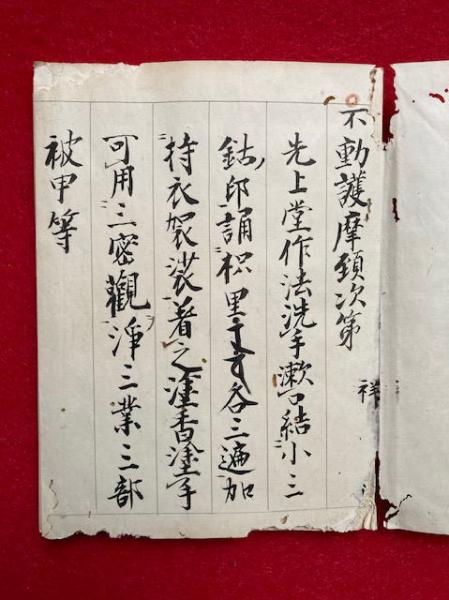 不動護摩頚次第
祥
先上堂作法洗手漱口結小三
鈷印誦枳里々々各三遍加
持衣袈裟著之塗香塗手
可用三密觀淨三業三部
被甲等